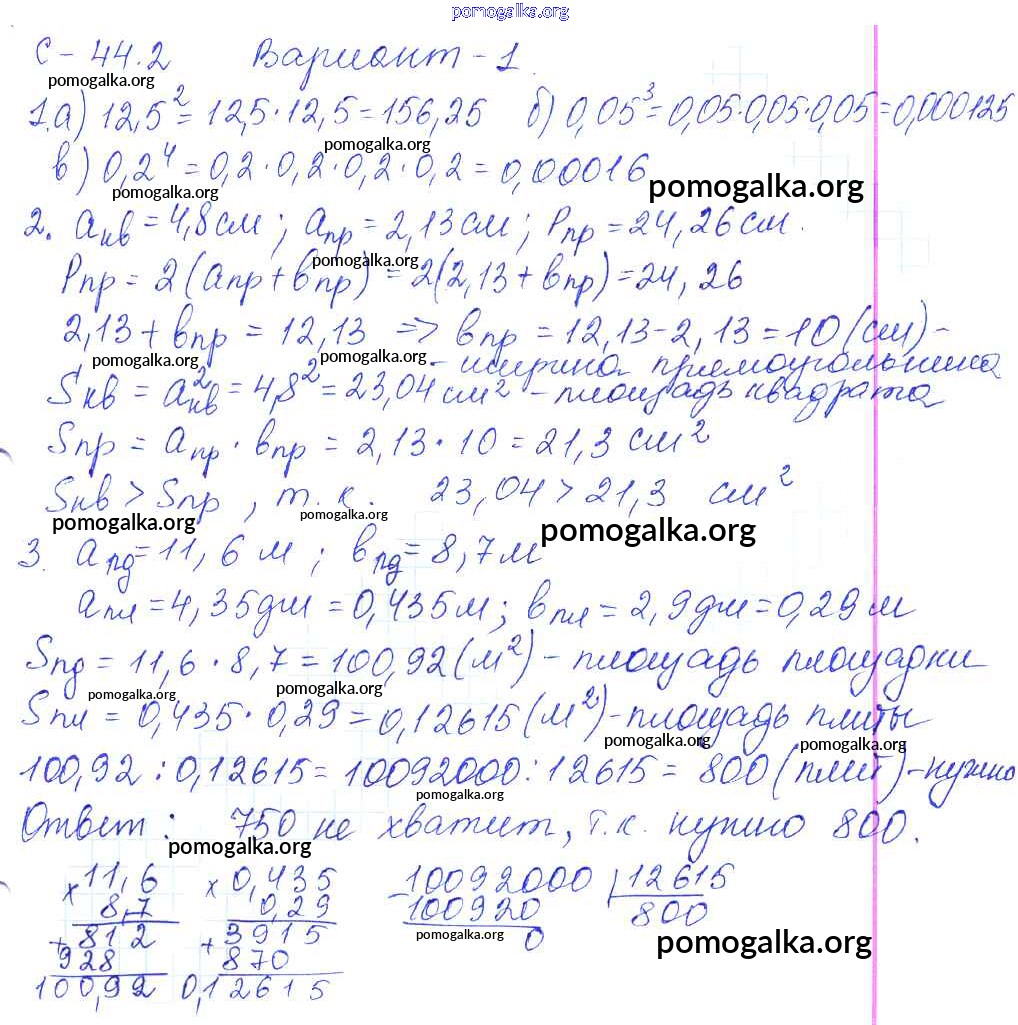 pomogalka.org
С-44.2 Вариант-1.
pomogalka.org
1.а) 12,5² = 12,5·12,5=156,25 б) 0,05³=0,05·0,05·0,05=0,000125
pomogalka.org
в) 0,2⁴ = 0,2·0,2·0,2·0,2=0,00016
pomogalka.org pomogalka.org
2. aкв=4,8см; aпр=2,13см; Pпр=24,26см.
pomogalka.org
Pпр = 2(aпр+bпр)=2(2,13+bпр)=24,26
2,13+bпр = 12,13 => bпр=12,13-2,13=10(см)-
pomogalka.org pomogalka.org
- ширина прямоугольника
Sкв = a²кв=4,8²=23,04см² - площадь квадрата
Sпр = aпр·bпр=2,13·10=21,3 см²
Sкв > Sпр, т.к. 23,04>21,3 см²
pomogalka.org pomogalka.org pomogalka.org
3. aпд=11,6 м; bпд=8,7м
aпл=4,35дм=0,435м; bпл=2,9дм=0,29м
Sпд = 11,6·8,7=100,92(м²) - площадь площадки
pomogalka.org pomogalka.org
Sпл = 0,435·0,29=0,12615(м²)-площадь плиты
pomogalka.org pomogalka.org
100,92:0,12615=10092000:12615=800(плит)-нужно
pomogalka.org
Ответ: 750 не хватит, т.к. нужно 800.
pomogalka.org
×11,6 ×0,435 -10092000 |12615
8,7 0,29 100920 800
+812 +3915 0
pomogalka.org pomogalka.org
928 870
100,92 0,12615